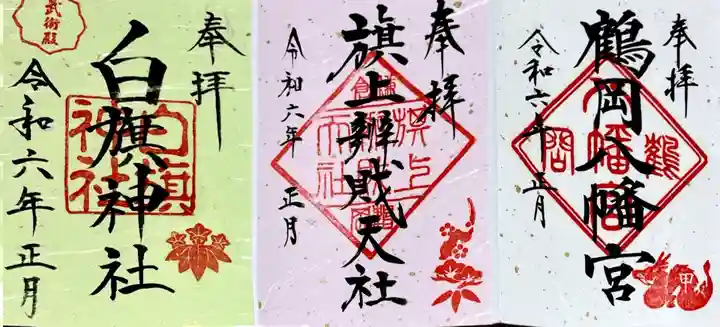 奉拝
鶴岡八幡宮
令和六年 正月
鶴岡
八幡宮
甲
奉拝
旗上辨財天社
令和六年 正月
奉拝
白旗神社
令和六年 正月
白旗
神社
武術殿